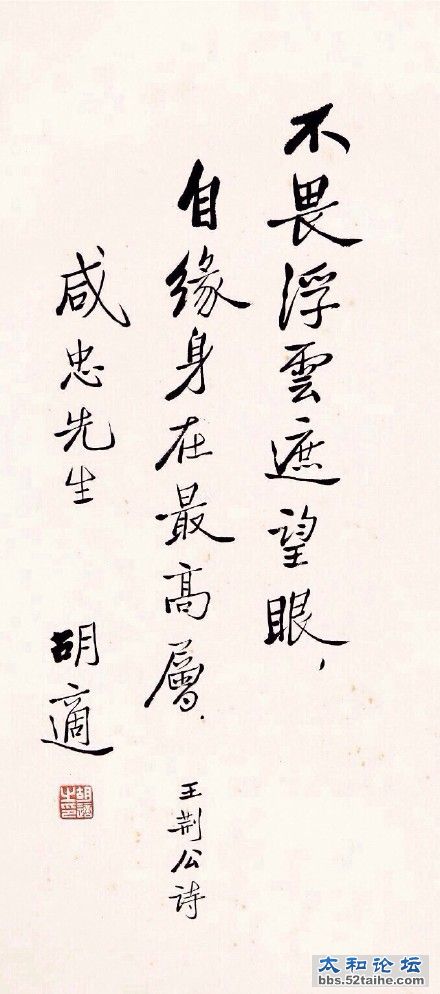 不畏浮雲遮望眼，
自缘身在最高層．
王荆公诗
咸忠先生
胡適
胡適之印
太和论坛
bbs.52taihe.com